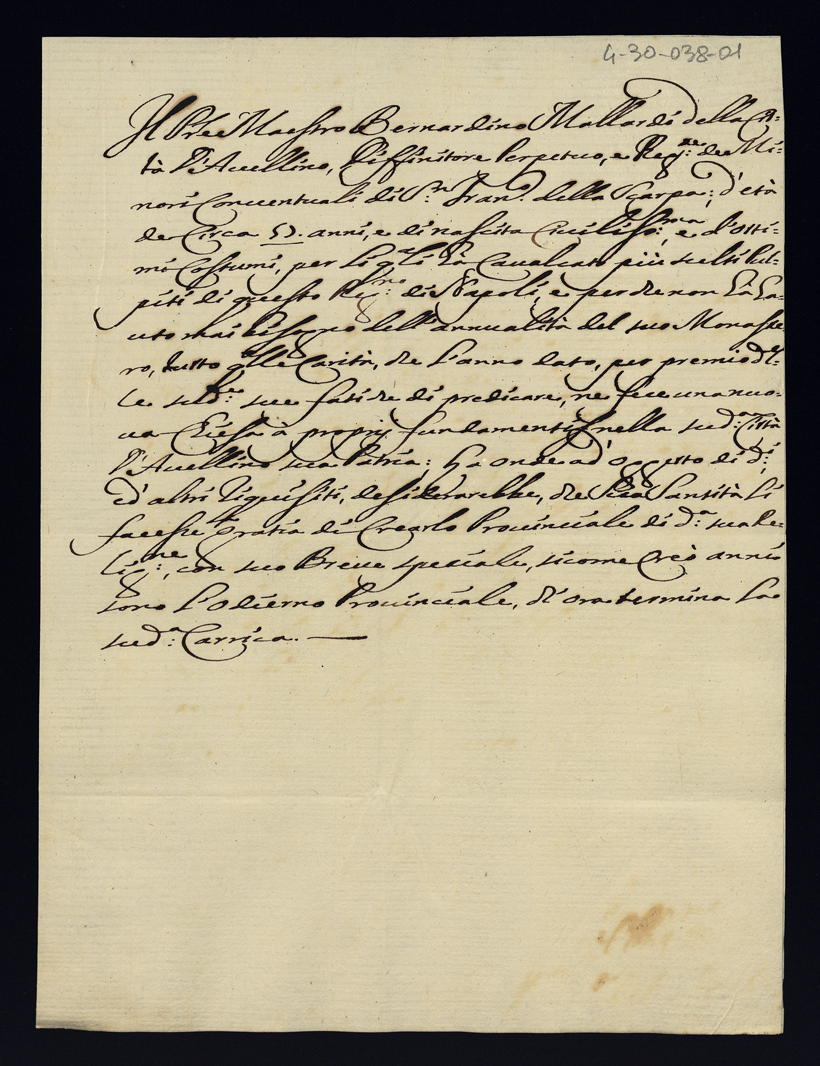 4-30-038-01
Il Pre Maestro Bernardino Mallardi della Cit=
tà d'Avellino, Diffinitore Perpetuo, e Reg.te de Mi=
nori Conventuali di S.n Fran.co della Scarpa; d'età
de Circa 52. anni, e di nascita Civiliss.ma; e d'otti=
mi Costumi, per li q.li hà Cavalcato più scelti Pul=
piti di questo Reg.no di Napoli, e perche non hà ha=
uto mai bisogno dell'annualità del suo Monaste=
ro, tutto q.lle Carità, che l'anno dato, per premio del=
le sud.e sue fatiche di predicare, ne fece una nuo=
ua Chiesa à proprij fundamenti nella sud.a Città
d'Avellino sua Patria: ha onde ad oggetto di d.i
ed altri riquisiti, desiderarebbe, che Sua Santità li
facesse gratia di Crearlo Provinciale di d.a sua Re=
lig.ne, con suo Breve speciale, sicome Creò anni
sono l'odierno Provinciale, ch'ora termina la
sud.a Carrica. —